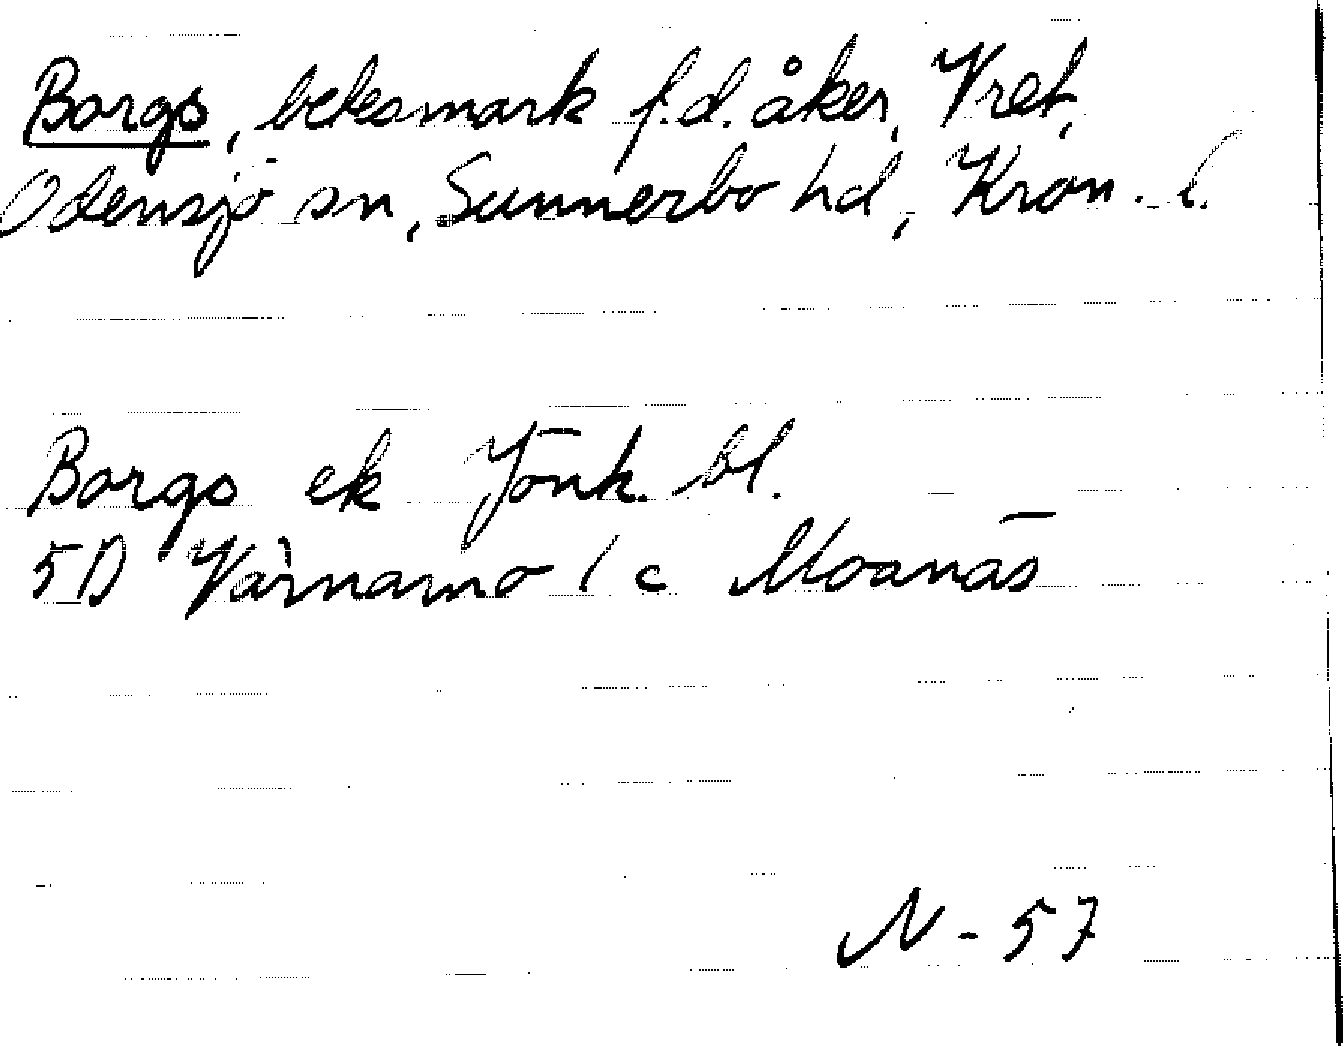 Borgs, betesmark f.d. åker, Vret,
Odensjö sn, Sunnerbo hd, Kron. l.
Borgs ek Jönk. bl.
5D Värnamo 1 c Moanäs
N - 57